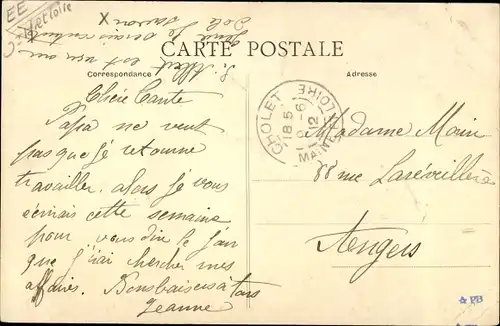 EE
CARTE POSTALE
Correspondance
Adresse
Chère Tante
Papa ne veut
pas que je retourne
travailler. alors je vous
écrirais cette semaine
pour vous dire le jour
que j'irai chercher mes
affaires. Bons baisers à tous
Jeanne
CHOLET
18 5
-6
12
MAINE LOIRE
Madame Morin
88 rue Laréveillère
Angers
PB